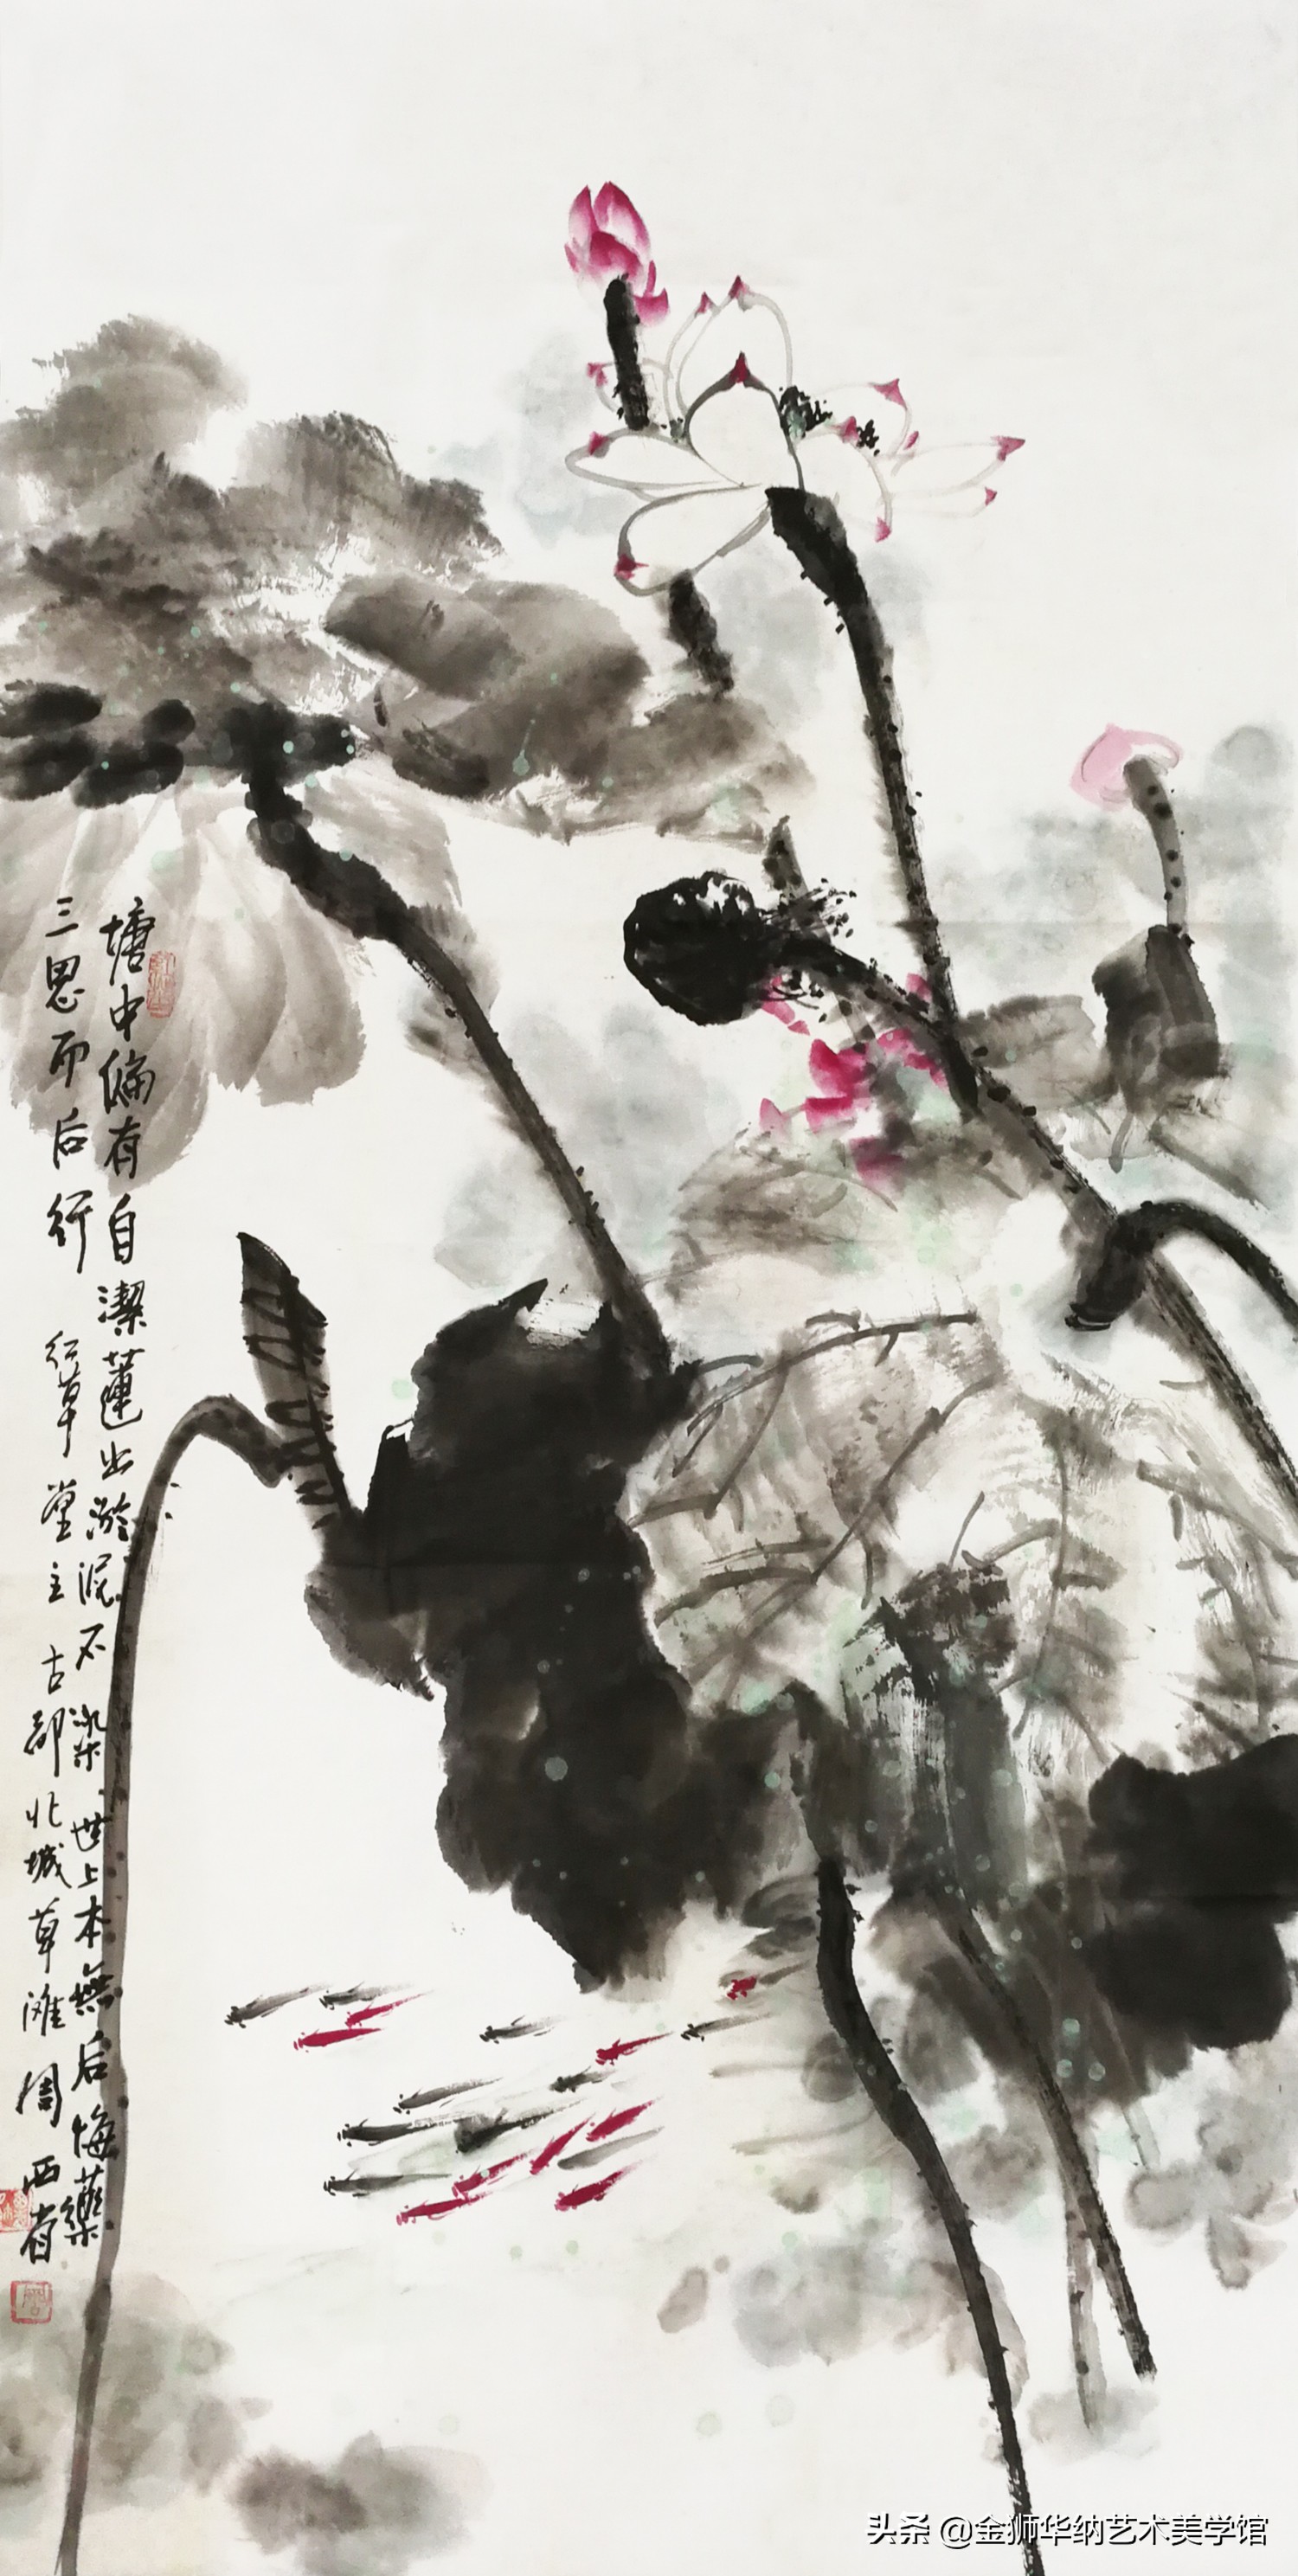 塘中偏有自潔蓮出淤泥不染世上本無后悔藥
三思而后行 行草堂主 古都北城草滩 周西省
头条 @金狮华纳艺术美学馆